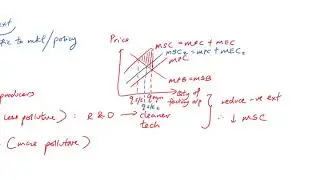 ext
to mkt/policy
Price
MSC = MPC + MEC
MSC₂ = MPC + MEC₂
MPC
MPB = MSB
Qty of
producers
less pollutive) : R & D → cleaner
tech
reduce -ve ext
∴ ↓ MSC
(more pollutive)